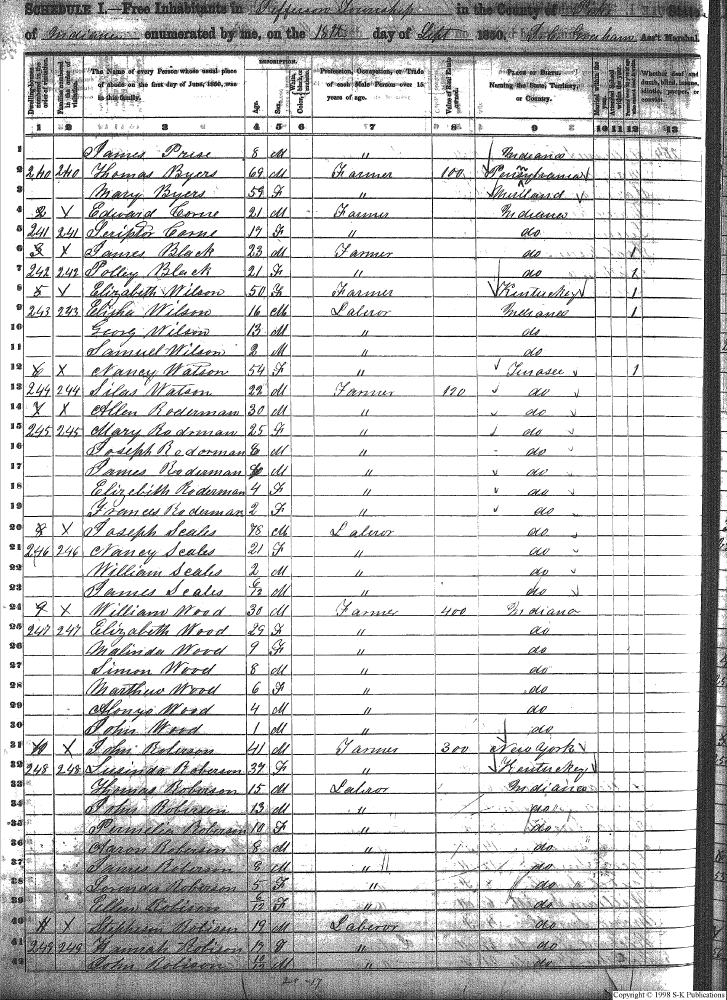 SCHEDULE I.—Free Inhabitants in Jefferson Township in the County of State
of Indiana enumerated by me, on the 18th day of Sept 1850. Ass't Marshal.
DESCRIPTION.
The Name of every Person whose usual place of abode on the first day of June, 1850, was in this family. Age. Sex. Profession, Occupation, or Trade of each Male Person over 15 years of age. PLACE OF BIRTH. Naming the State, Territory, or Country.
1 2 3 4 5 6 7 8 9 10 11 12 13
1 James Prise 8 M " Indiana
2 240 240 Thomas Byers 69 M Farmer 100 Pennsylvania
3 Mary Byers 59 F " Mariland
4 2 X Edward Corne 21 M Farmer Indiana
5 241 241 Corne 17 F " do
6 3 X James Black 23 M Farmer do 1
7 242 242 Polley Black 21 F " do 1
8 5 X Elizabeth Wilson 50 F Farmer Kentuckey 1
9 243 243 Elisha Wilson 16 M Laberor Indiana 1
10 Georg Wilson 13 M " do
11 Samuel Wilson 2 M " do
12 6 X Nancy Watson 54 F " Tinasee 1
13 244 244 Silas Watson 22 M Farmer 120 do
14 X X Allen Roderman 30 M " do
15 245 245 Mary Rodrman 25 F " do
16 Joseph Rodorman 8 M " do
17 James Roderman 6 M " do
18 Elizebith Roderman 4 F " do
19 Frances Roderman 2 F " do
20 8 X Joseph Scales 78 M Laberor do
21 246 246 Nancy Scales 21 F " do
22 William Scales 2 M " do
23 James Scales 6/12 M " do
24 9 X William Wood 30 M Farmer 400 Indiana
25 247 247 Elizabeth Wood 29 F " do
26 Malinda Wood 9 F " do
27 Simon Wood 8 M " do
28 Marthew Wood 6 F " do
29 Alonzo Wood 4 M " do
30 John Wood 1 M " do
31 10 X John Roberson 41 M Farmer 300 New York
32 248 248 Lusinda Roberson 37 F " Kentuckey
33 Thomas Roberson 15 M Laberor Indiana
34 John Roberson 13 M " do
35 Permelia Roberson 10 F " do
36 Aaron Roberson 8 M " do
37 James Roberson 8 M " do
38 Lorinda Roberson 5 F " do
39 Ellen Robison 6/12 F " do
40 11 X Stepheson Robison 19 M Laberor do
41 249 249 Hannah Robison 17 F " do
42 John Robison 10/12 M " do
Copyright © 1998 S-K Publications